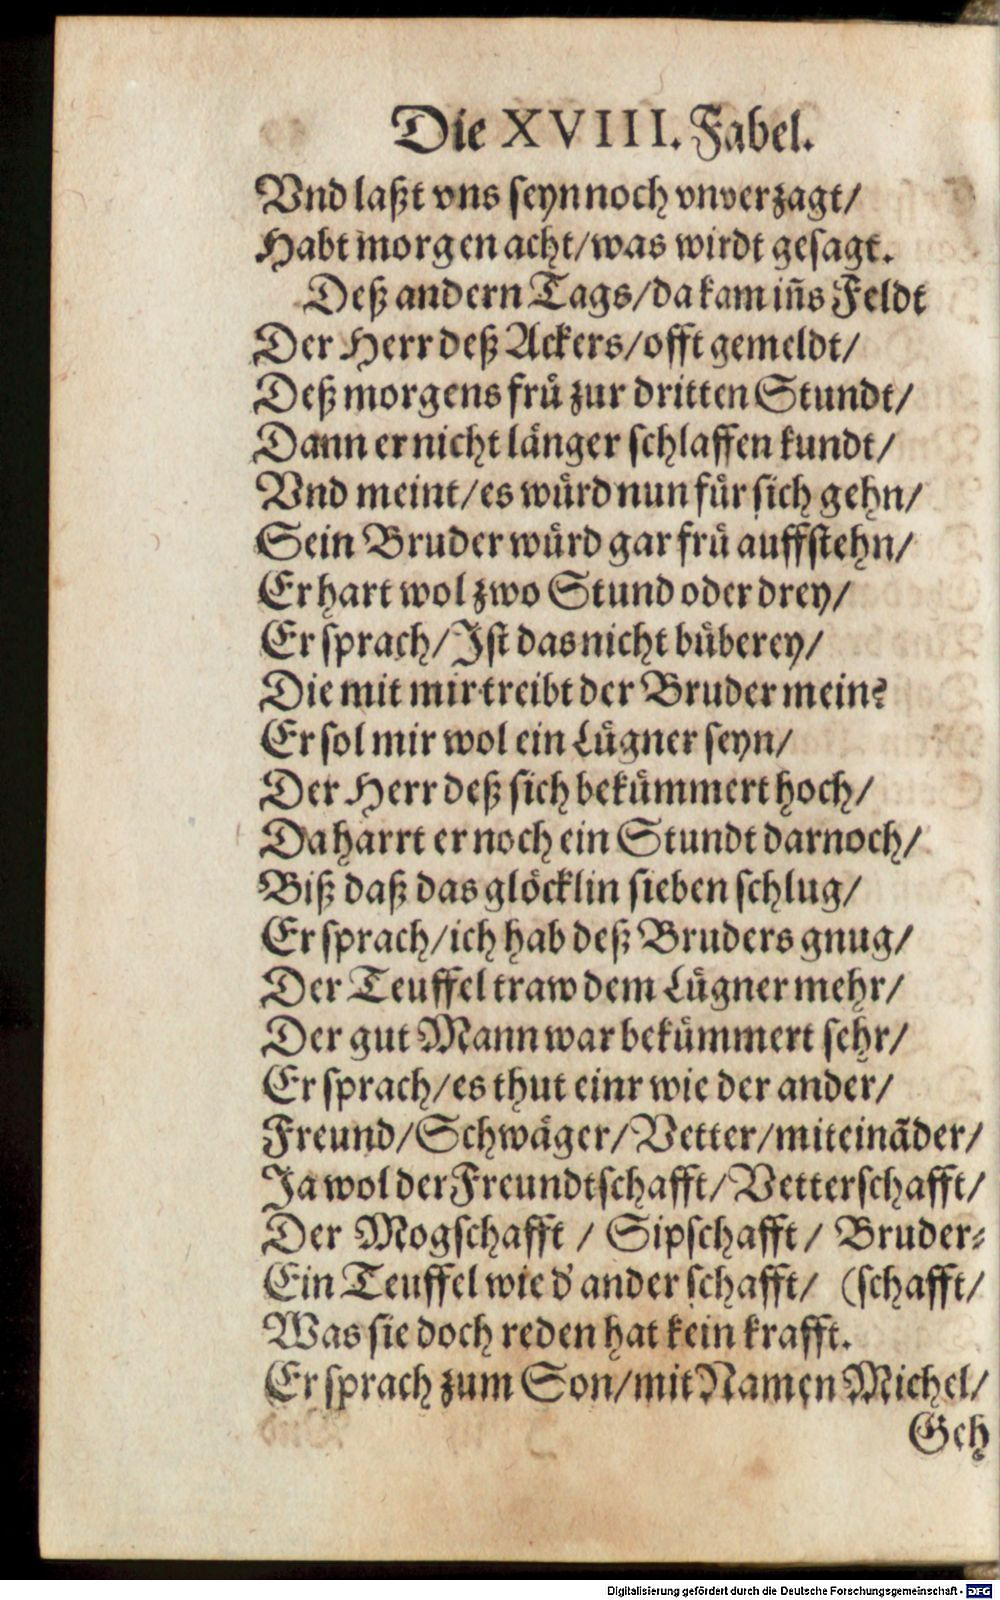 Die XVIII. Fabel.
Vnd laßt vns seyn noch vnverzagt/
Habt morgen acht/was wirdt gesagt.
Deß andern Tags/da kam iñs Feldt
Der Herr deß Ackers/offt gemeldt/
Deß morgens fruͤ zur dritten Stundt/
Dann er nicht laͤnger schlaffen kundt/
Vnd meint/es wuͤrd nun fuͤr sich gehn/
Sein Bruder wuͤrd gar fruͤ auffstehn/
Er hart wol zwo Stund oder drey/
Er sprach/Ist das nicht buͤberey/
Die mit mir treibt der Bruder mein?
Er sol mir wol ein Luͤgner seyn/
Der Herr deß sich bekuͤmmert hoch/
Da harrt er noch ein Stundt darnoch/
Biß daß das gloͤcklin sieben schlug/
Er sprach/ich hab deß Bruders gnug/
Der Teuffel traw dem Luͤgner mehr/
Der gut Mann war bekuͤmmert sehr/
Er sprach/es thut einr wie der ander/
Freund/Schwaͤger/Vetter/miteinãder/
Ja wol der Freundtschafft/Vetterschafft/
Der Mogschafft / Sipschafft / Bruder-
Ein Teuffel wie d' ander schafft/ (schafft/
Was sie doch reden hat kein krafft.
Er sprach zum Son/mit Namen Michel/
Geh
Digitalisierung gefördert durch die Deutsche Forschungsgemeinschaft - DFG